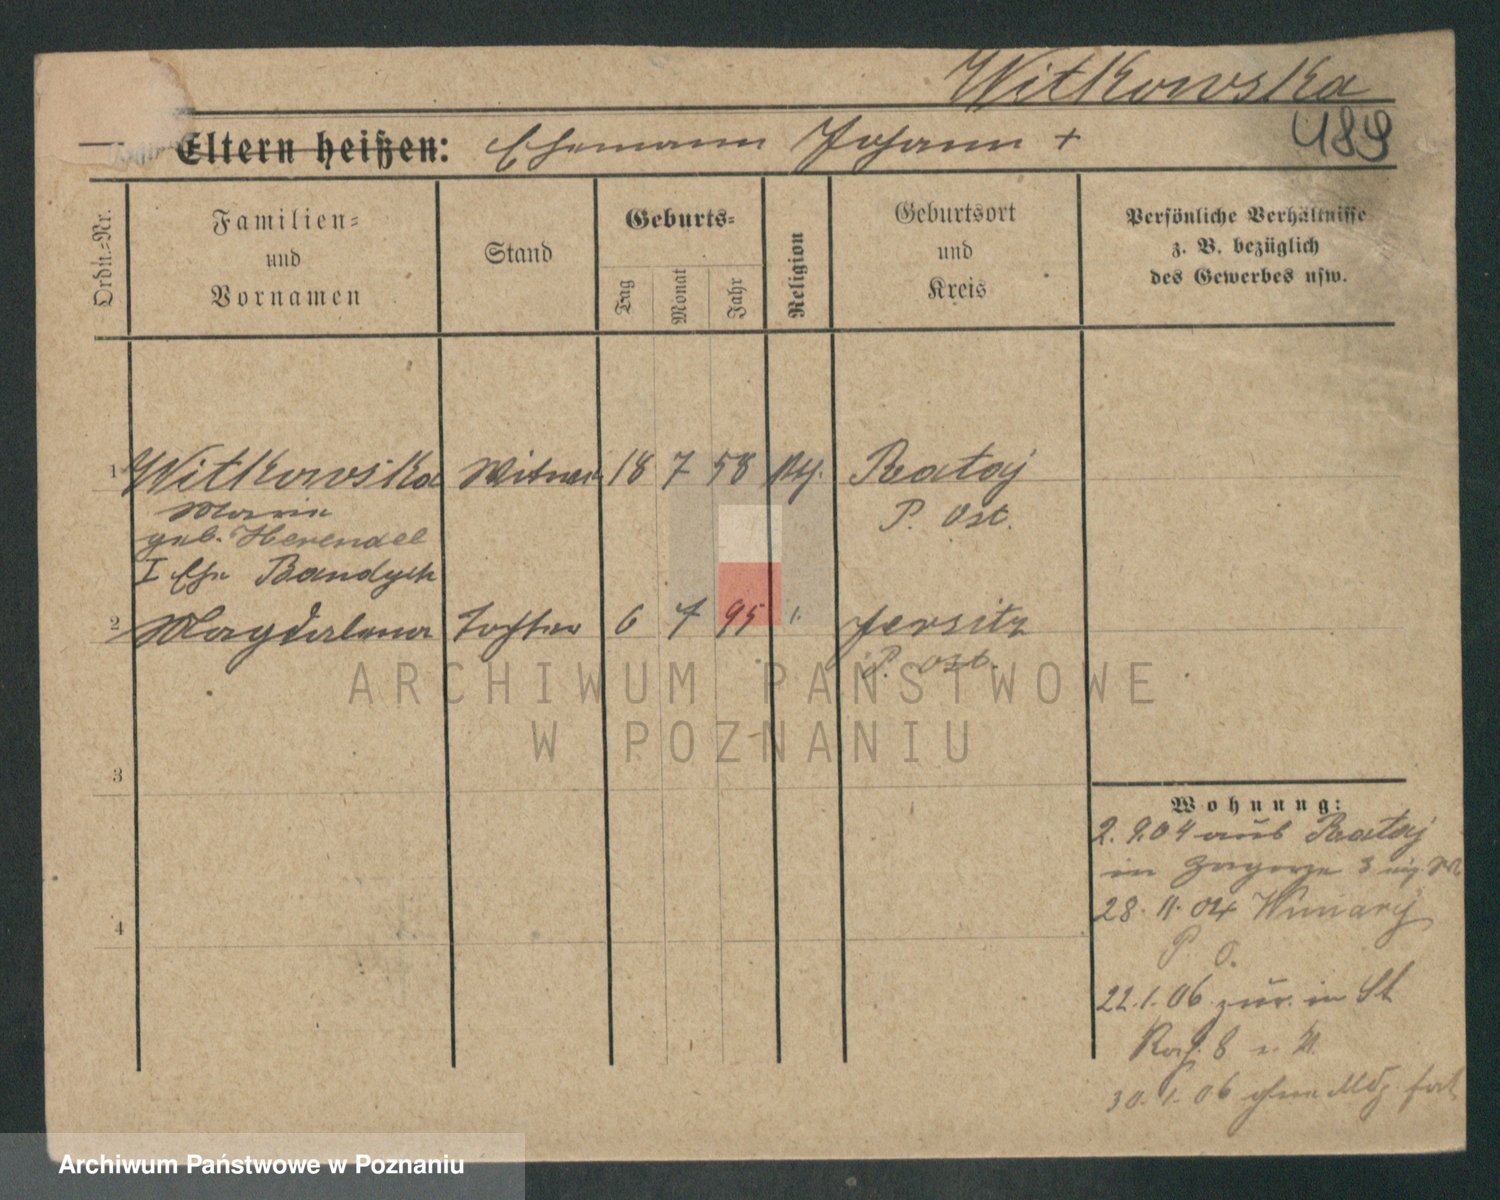 Witkowska
Eltern heißen: Ehemann Johann +
489
Ordn.-Nr.
Familien-
und
Vornamen
Stand
Geburts-
Tag
Monat
Jahr
Religion
Geburtsort
und
Kreis
Persönliche Verhältnisse
z. B. bezüglich
des Gewerbes usw.
1 Witkowska 18 7 58 Rataj
Marie P. Ost.
geb. Herendel
I Ehe
2 Magdalena Tochter 6 7 95 Jersitz
P. Ost.
3
4
Wohnung:
2. 9. 04 aus Rataj
in Zagorze 3
28. 11. 04 Winiary
P. O.
22. 1. 06 zur. in
8
30. 1. 06 ohne Mldg. fort
ARCHIWUM PAŃSTWOWE
W POZNANIU
Archiwum Państwowe w Poznaniu